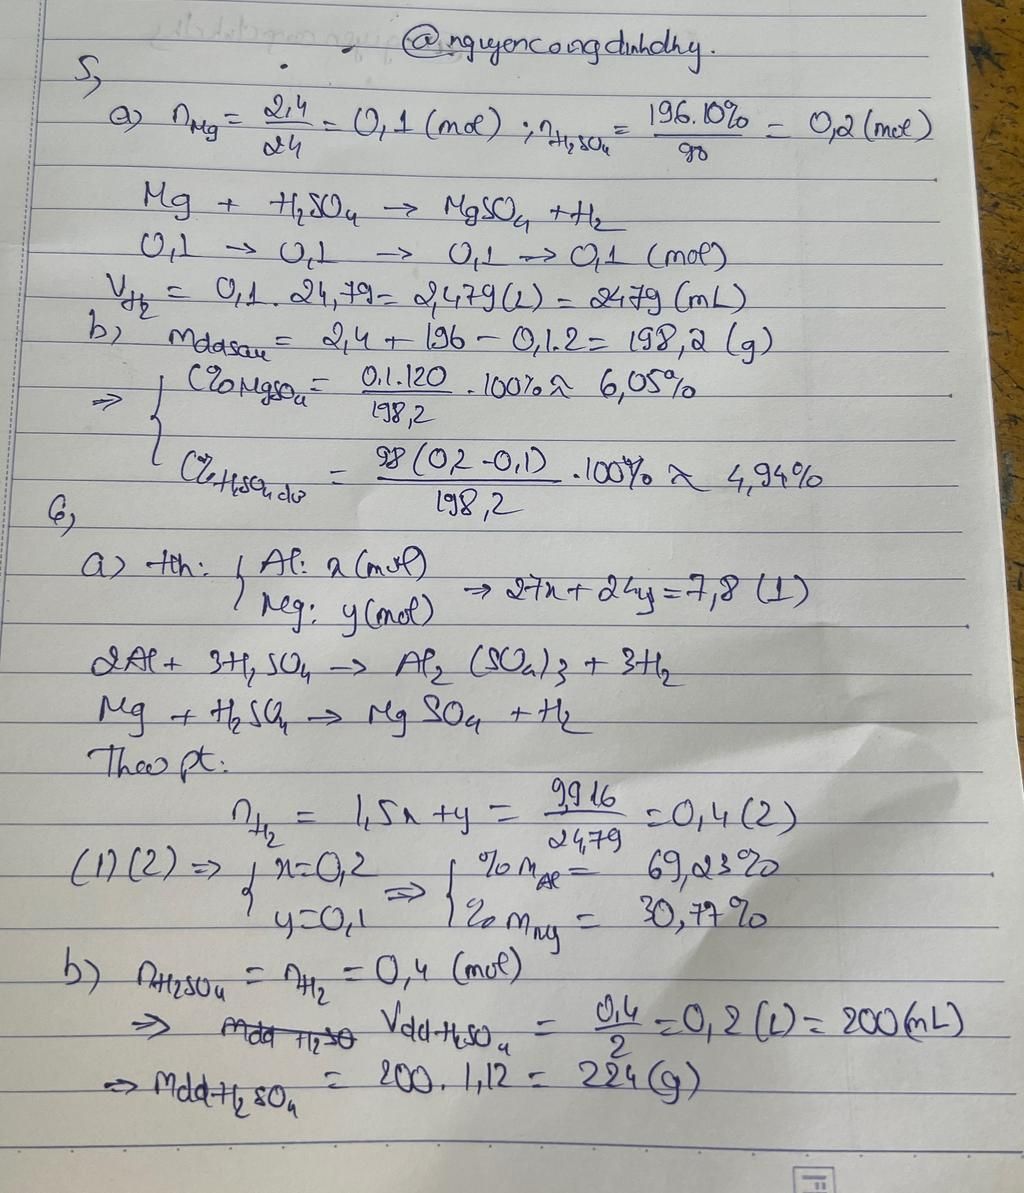 @nguyencongdinhdhy.
5,
a) nMg = 2,4/24 = 0,1 (mol) ; nH₂SO₄ = 196.10%/98 = 0,2 (mol)
Mg + H₂SO₄ → MgSO₄ + H₂
0,1 → 0,1 → 0,1 → 0,1 (mol)
VH₂ = 0,1 . 24,79 = 2,479 (L) = 2479 (mL)
b) mddsau = 2,4 + 196 - 0,1.2 = 198,2 (g)
⇒ { C%MgSO₄ = 0,1.120/198,2 . 100% ≈ 6,05%
C%H₂SO₄ dư = 98(0,2-0,1)/198,2 . 100% ≈ 4,94%
6,
a) hh: { Al: x (mol)
Mg: y (mol) ⇒ 27x + 24y = 7,8 (1)
2Al + 3H₂SO₄ → Al₂(SO₄)₃ + 3H₂
Mg + H₂SO₄ → MgSO₄ + H₂
Theo pt:
nH₂ = 1,5x + y = 9,916/24,79 = 0,4 (2)
(1)(2) ⇒ { x=0,2 ⇒ { %mAl = 69,23%
y=0,1 %mMg = 30,77%
b) nH₂SO₄ = nH₂ = 0,4 (mol)
⇒ Vdd H₂SO₄ = 0,4/2 = 0,2 (L) = 200 (mL)
⇒ mdd H₂SO₄ = 200 . 1,12 = 224 (g)